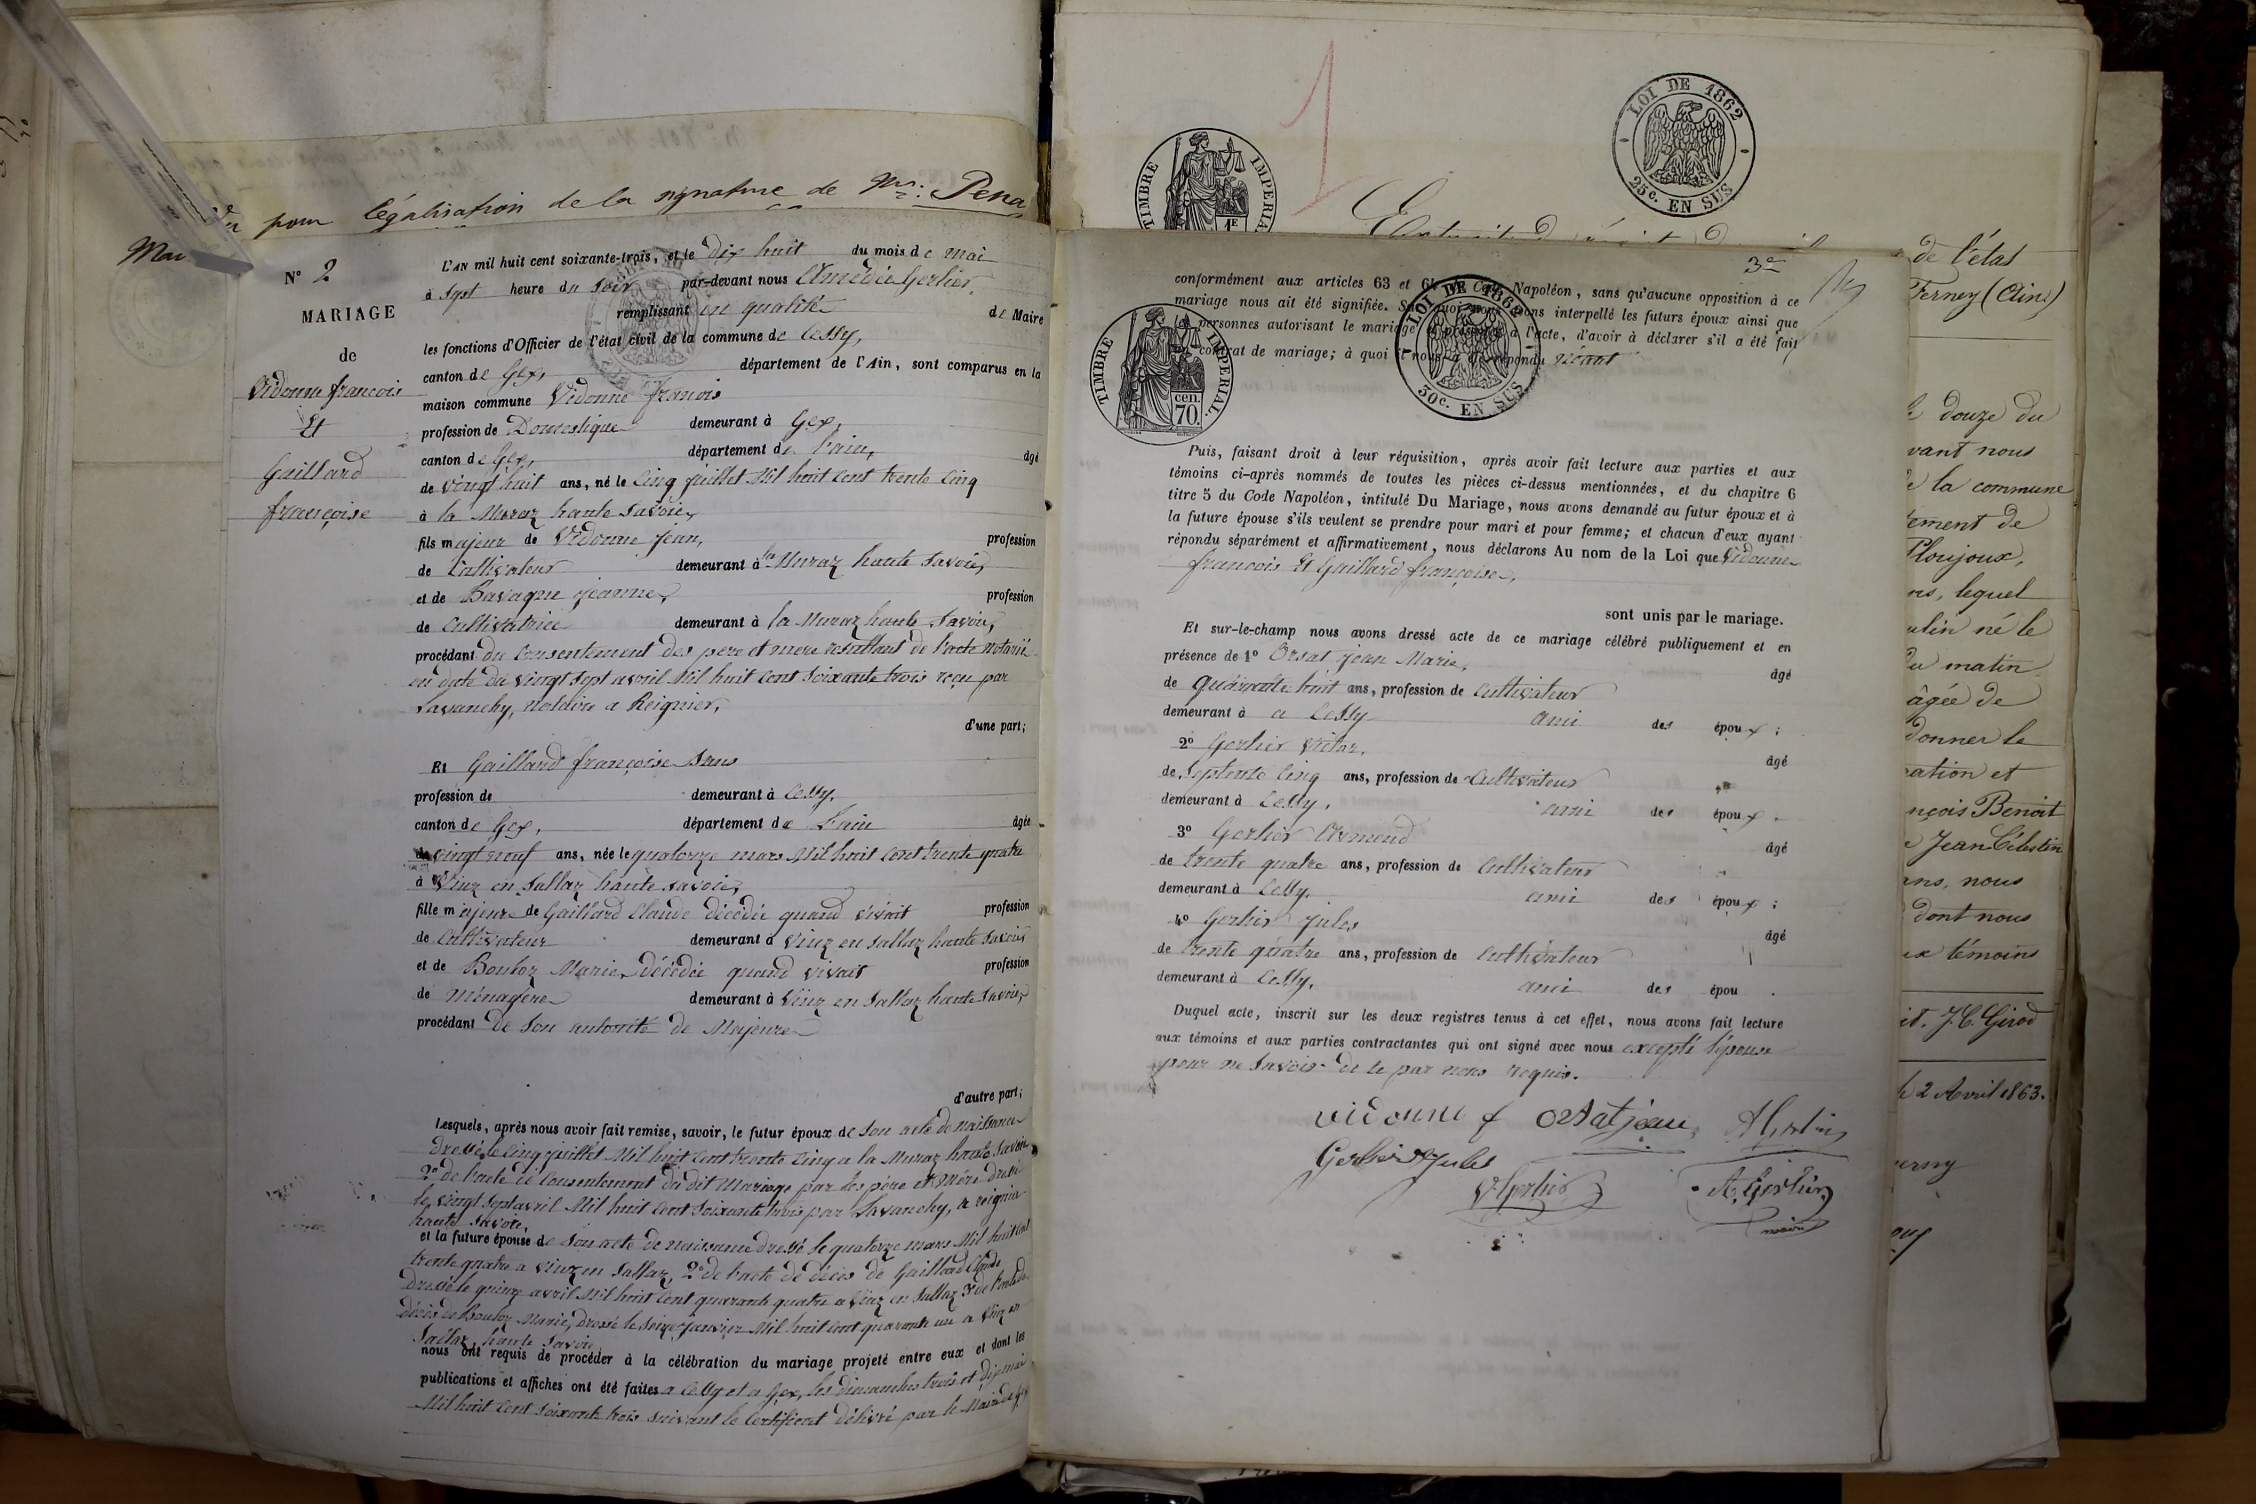 pour légalisation de la signature de Mr. Pena
N° 2
MARIAGE
de
Vidonne françois
Et
Gaillard
françoise
L'AN mil huit cent soixante-trois, et le dix huit du mois de Mai
à sept heure du soir par-devant nous Amédée Gerlier,
remplissant en qualité de Maire
les fonctions d'Officier de l'état civil de la commune de Cessy,
canton de Gex, département de l'Ain, sont comparus en la
maison commune Vidonne françois
profession de Domestique demeurant à Gex,
canton de Gex, département de l'ain, âgé
de vingt huit ans, né le cinq juillet Mil huit cent trente cinq
à la Muraz haute Savoie,
fils majeur de Vidonne Jean, profession
de Cultivateur demeurant à la Muraz haute Savoie,
et de Bavaque jeanne, profession
de Cultivatrice demeurant à la Muraz haute Savoie,
procédant du consentement des pere et mere résultant de l'acte notarié
en date du vingt sept avril Mil huit cent soixante trois reçu par
Lavanchy, Notaire a Reignier,
d'une part;
Et Gaillard françoise Sans
profession de demeurant à Cessy,
canton de Gex, département de l'ain âgée
de vingt neuf ans, née le quatorze mars Mil huit cent trente quatre
à Viuz en Sallaz haute savoie,
fille majeure de Gaillard Claude décédé quand vivait profession
de Cultivateur demeurant à Viuz en Sallaz haute Savoie
et de Bouloz Marie, décédée quand vivait profession
de Ménagère demeurant à Viuz en Sallaz haute Savoie,
procédant de son autorité de Majeure
d'autre part;
Lesquels, après nous avoir fait remise, savoir, le futur époux de son acte de naissance
dressé le cinq juillet Mil huit cent trente cinq a la Muraz haute Savoie
2° de l'acte de consentement du dit Mariage par les père et Mère dressé
le vingt sept avril Mil huit cent soixante trois par Lavanchy, a reignier
haute Savoie,
et la future épouse de son acte de naissance dressé le quatorze mars Mil huit cent
trente quatre a viuz en Sallaz, 2° de l'acte de décès de Gaillard Claude
dressé le quinze avril Mil huit cent quarante quatre a Viuz en Sallaz 3° de l'acte de
décès de Bouloz Marie, dressé le seize Janvier Mil huit cent quarante un a Viuz en
Sallaz, haute Savoie
nous ont requis de procéder à la célébration du mariage projeté entre eux et dont les
publications et affiches ont été faites a Cessy et a Gex, les dimanches trois et dix mai
Mil huit cent soixante trois suivant le Certificat délivré par le Maire de Gex
1
LOI DE 1862
25c. EN SUS
TIMBRE IMPERIAL
1F
3e
conformément aux articles 63 et 64 du Code Napoléon, sans qu'aucune opposition à ce
mariage nous ait été signifiée. Sur quoi nous avons interpellé les futurs époux ainsi que
personnes autorisant le mariage et présentes à l'acte, d'avoir à déclarer s'il a été fait
contrat de mariage; à quoi il nous a été répondu néant
LOI DE 1862
30c. EN SUS
TIMBRE IMPERIAL.
cen.
70.
Puis, faisant droit à leur réquisition, après avoir fait lecture aux parties et aux
témoins ci-après nommés de toutes les pièces ci-dessus mentionnées, et du chapitre 6
titre 5 du Code Napoléon, intitulé Du Mariage, nous avons demandé au futur époux et à
la future épouse s'ils veulent se prendre pour mari et pour femme; et chacun d'eux ayant
répondu séparément et affirmativement, nous déclarons Au nom de la Loi que Vidonne
francois Et Gaillard françoise,
sont unis par le mariage.
Et sur-le-champ nous avons dressé acte de ce mariage célébré publiquement et en
présence de 1° Orsat jean Marie, âgé
de quarante huit ans, profession de cultivateur
demeurant à a Cessy ami des époux ;
2° Gerlier Victor, âgé
de septente cinq ans, profession de Cultivateur
demeurant à Cessy, ami des époux .
3° Gerlier Armend âgé
de trente quatre ans, profession de Cultivateur
demeurant à Cessy, ami des époux ;
4° Gerlier Jules âgé
de trente quatre ans, profession de Cultivateur
demeurant à Cessy, ami des épou .
Duquel acte, inscrit sur les deux registres tenus à cet effet, nous avons fait lecture
aux témoins et aux parties contractantes qui ont signé avec nous excepté l'épouse
pour ne Savoir de ce par nous requis.
vidonne f orsat jean A Gerlier
Gerlier Jules
V Gerlier A. Gerlier
maire
de l'état
Ferney (Ain)
douze du
vant nous
la commune
ement de
Ploujoux,
lequel
né le
du matin
âgée de
donner le
ration et
nçois Benoit
Jean Célestin
ans, nous
dont nous
témoins
J.C. Girod
le 2 Avril 1863.